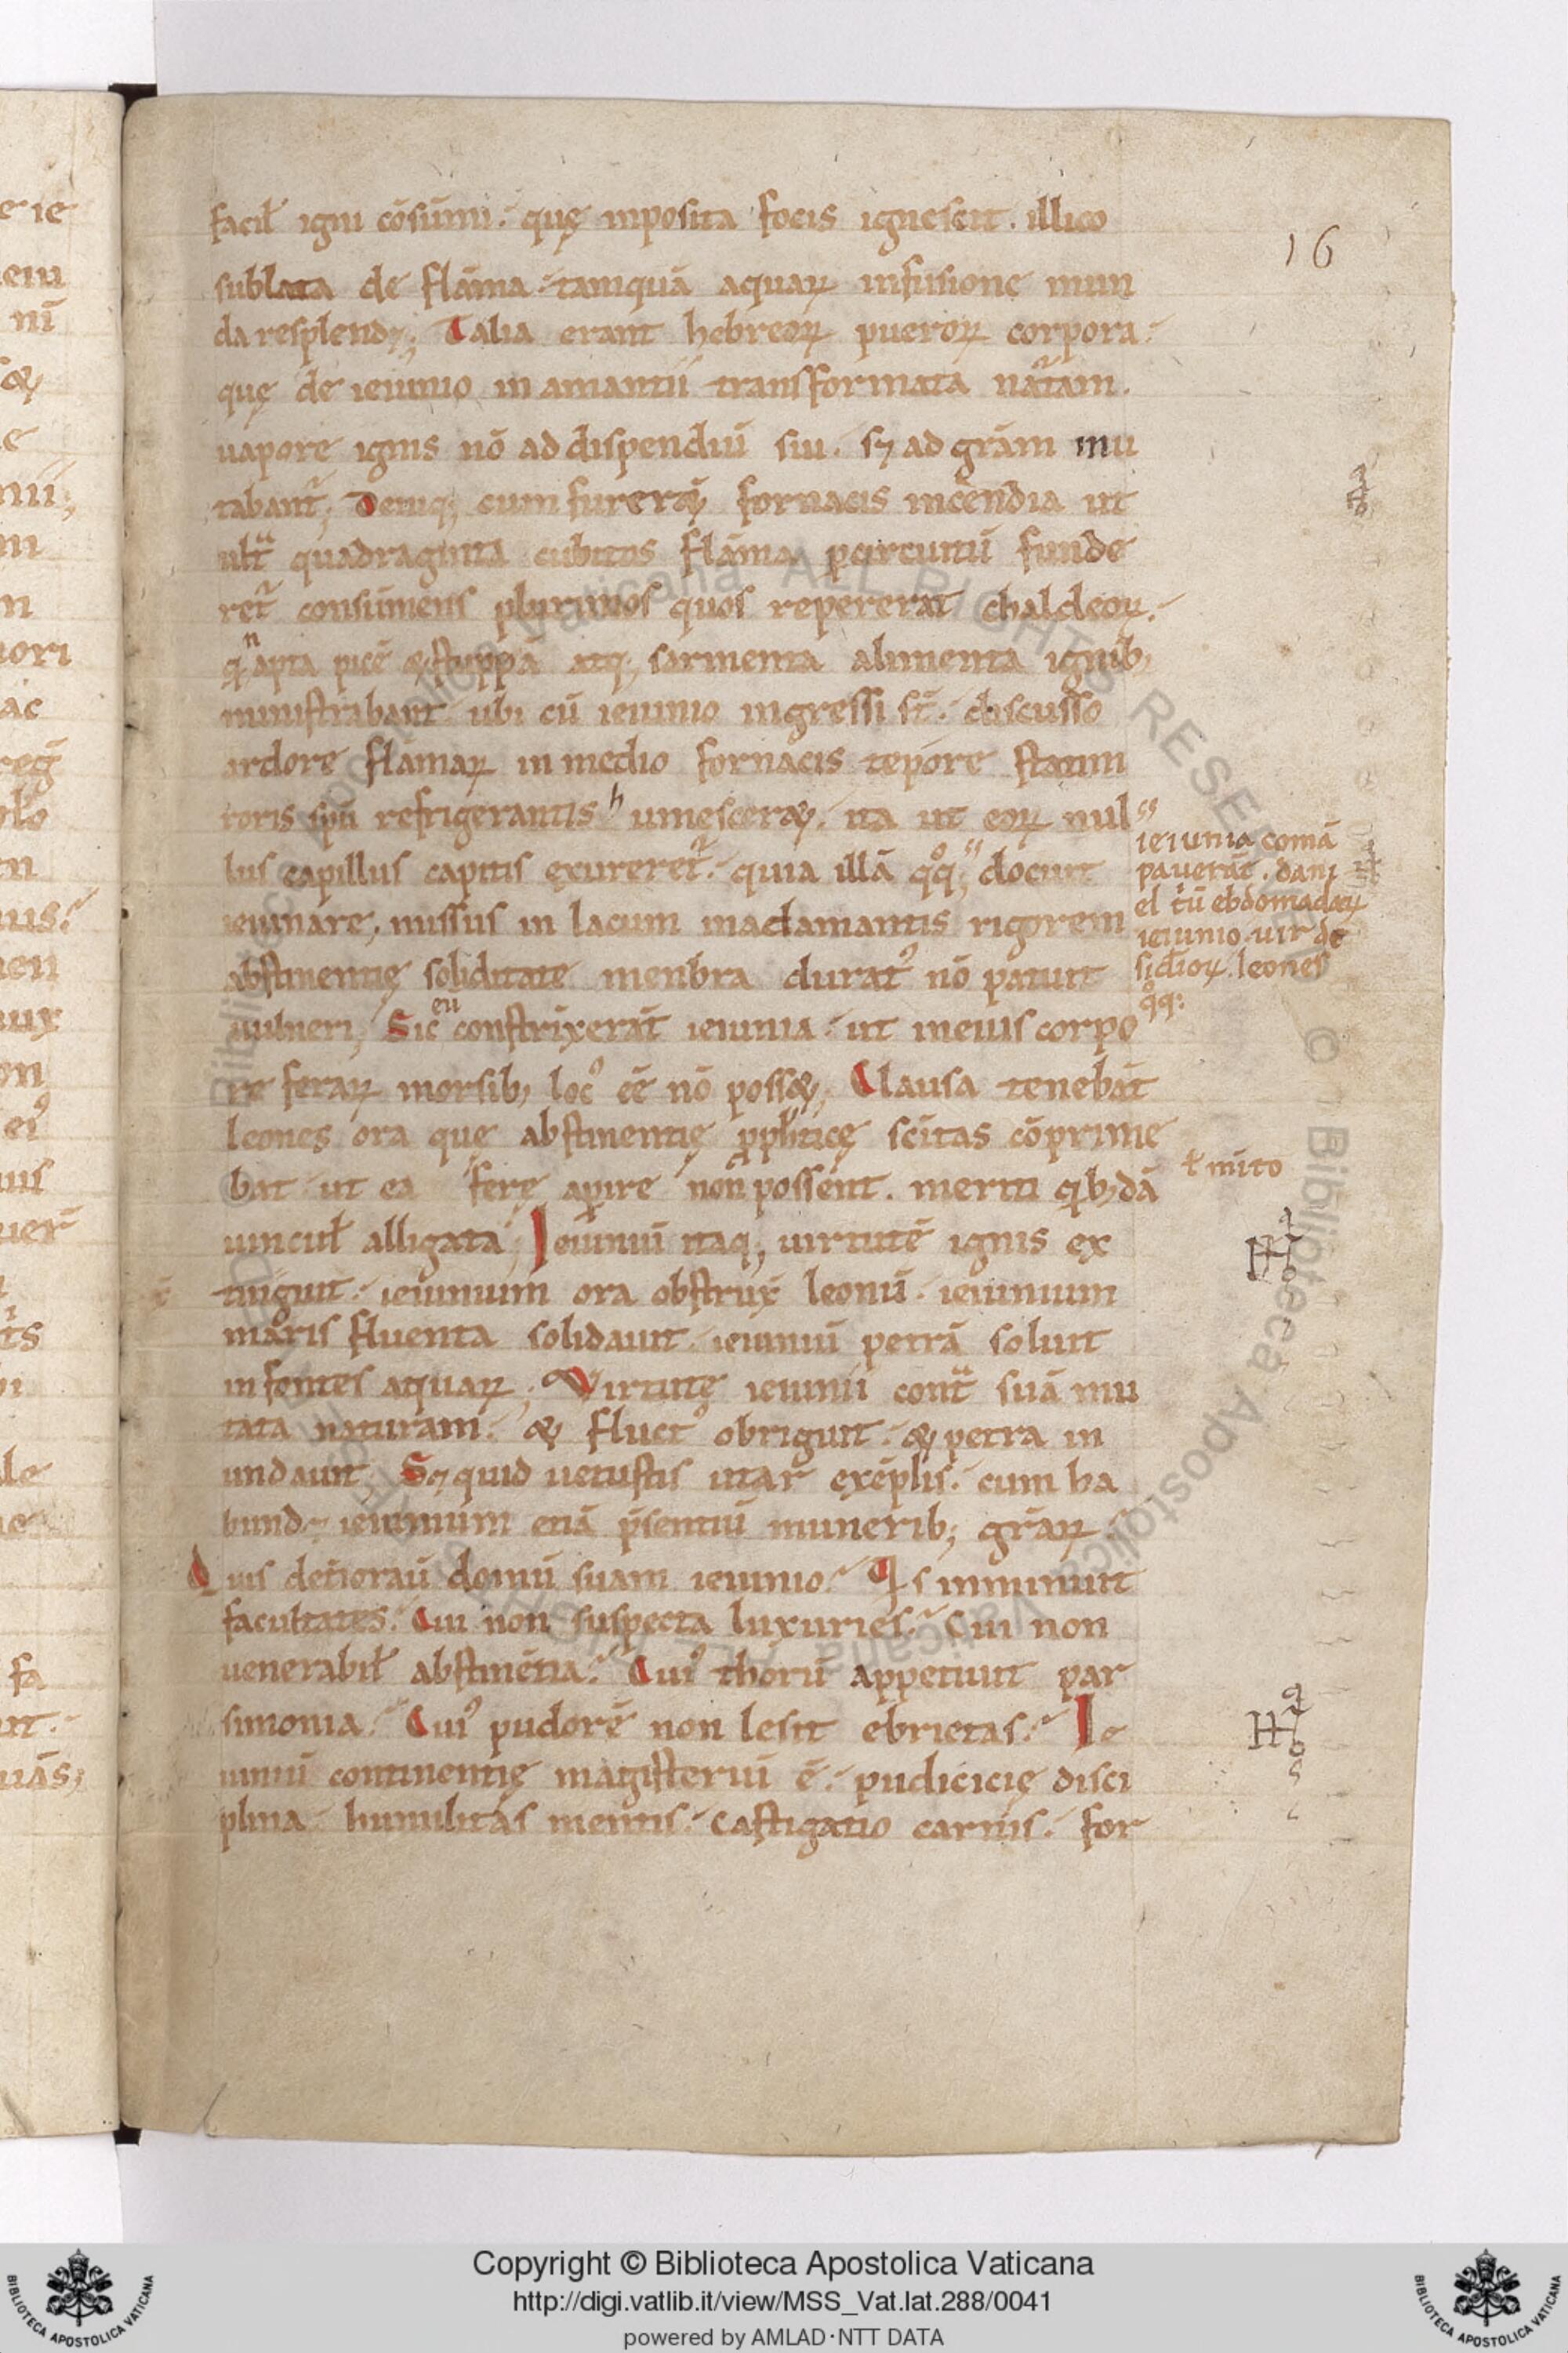 facił igni cōsūmi. quę inposita focis ignescit. illico
sublata de flāma. tamquā aquaꝝ infusione mun
da resplend&; Talia erant hebreoꝝ pueroꝝ corpora.
quę de ieiunio in amantii transformata nat̄am.
uapore ignis nō ad dispendiū sui. sꝫ ad grām mu
tabant᷑; Deniqꝫ cum furer& fornacis incendia ut
ult̄ quadraginta cubitus flāma ꝑ circuitū funde
ret᷑ consumens plurimos quos repererat chaldeoꝝ.
qn apta picē & stuppā atqꝫ sarmenta alimenta ignibꝫ
ministrabant ubi cū ieiunio ingressi st̄. discusso
ardore flāmaꝝ in medio fornacis tepore statim
roris spū refrigerantis humescer&. ita ut eoꝝ nul
lus capillus capitis exureret᷑. quia illā qqꝫ docuit
ieiunare. missus in lacum inadamantis rigorem
abstinentię soliditate menbra duratꝰ nō patuit
uulneri; Sic eū constrixerāt ieiunia. ut in eius corpo
re feraꝝ morsibꝫ locꝰ ēē nō poss&; Clausa tenebāt
leones ora quę abstinentię ꝓphticę scītas cōprime
bat ut ea ferę aꝑire non possent. meriti qibꝫdā
uincuł alligata; Ieiuniū itaqꝫ uirtutē ignis ex
tinguit. ieiunium ora obstrux̄ leonū. ieiunium
maris fluenta solidauit. ieiuniū petrā soluit
in fontes aquaꝝ; Virtutę ieiunii cont̄ suā mu
tata naturam. & fluctꝰ obriguit. & petra in
undauit. Sꝫ quid uetustis utar exēplis. cum ha
bund& ieiunium etiā p̄sentiū muneribꝫ grāꝝ.
Quis deteriorau̅ domū suam ieiunio. Qis imminuit
facultates. Cui non suspecta luxuries. Cui non
uenerabił abstinētia. Cuiꝰ thorū appetiuit par
simonia. Cuiꝰ pudorē non lesit ebrietas. Ie
iuniū continentię magisteriū ē. pudicicię disci
plina. humilitas mentis. castigatio carnis. for
16
ieiunia comā
pauerāt. dani
el t͛ū ebdomadaꝝ
ieiunio. uir de
sid̄ioꝝ. leones
qqꝫ
ł mito
Copyright © Biblioteca Apostolica Vaticana
http://digi.vatlib.it/view/MSS_Vat.lat.288/0041
powered by AMLAD·NTT DATA
BIBLIOTECA APOSTOLICA VATICANA
BIBLIOTECA APOSTOLICA VATICANA